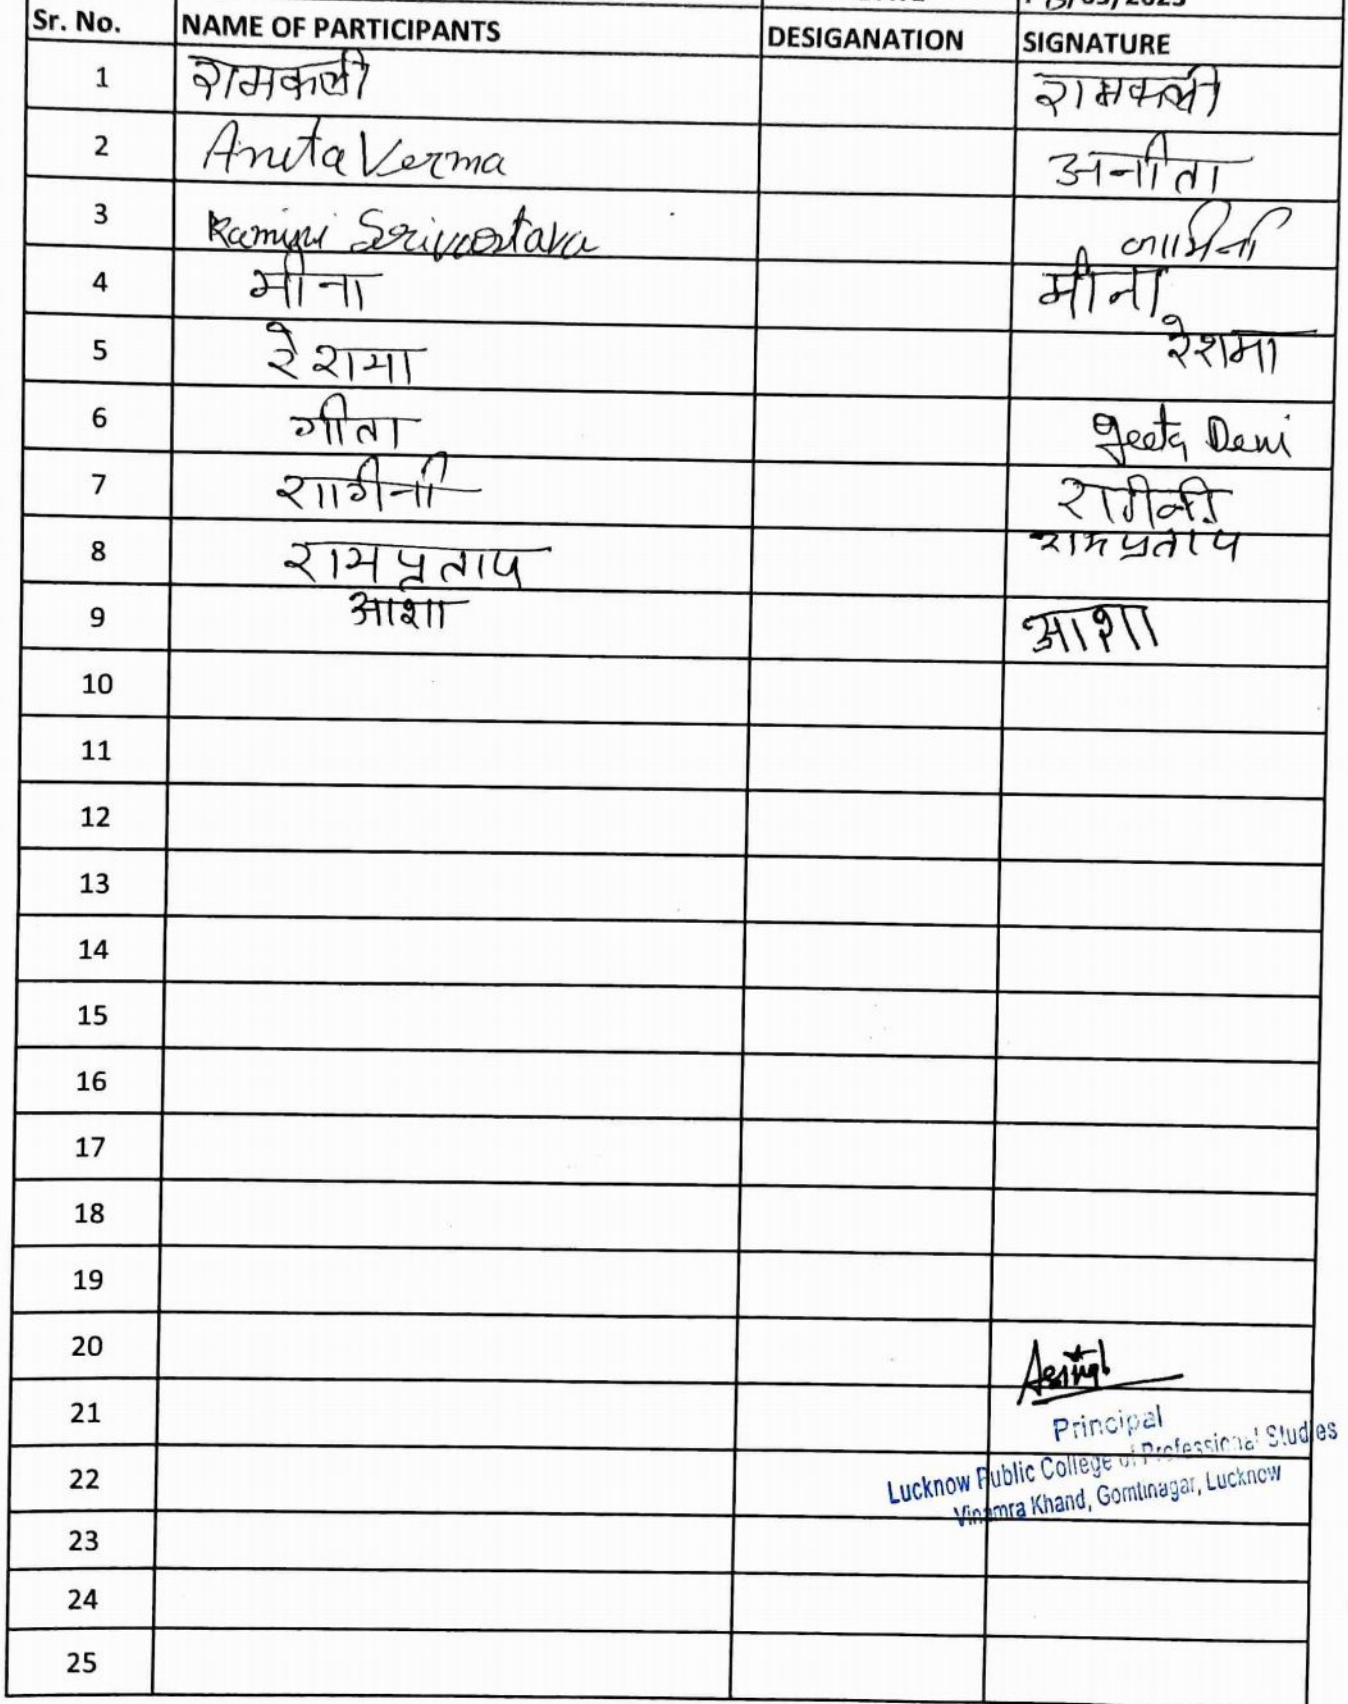 Sr. No. NAME OF PARTICIPANTS DESIGANATION SIGNATURE
1 रामकली रामकली
2 Anita Verma अनीता
3 Kamini Srivastava कामिनी
4 मीना मीना
5 रेशमा रेशमा
6 गीता Geeta Devi
7 रागीनी रागीनी
8 रामप्रताप रामप्रताप
9 आशा आशा
10
11
12
13
14
15
16
17
18
19
20 Asingh
21
Principal
22
Lucknow Public College of Professional Studies
Vinamra Khand, Gomtinagar, Lucknow
23
24
25